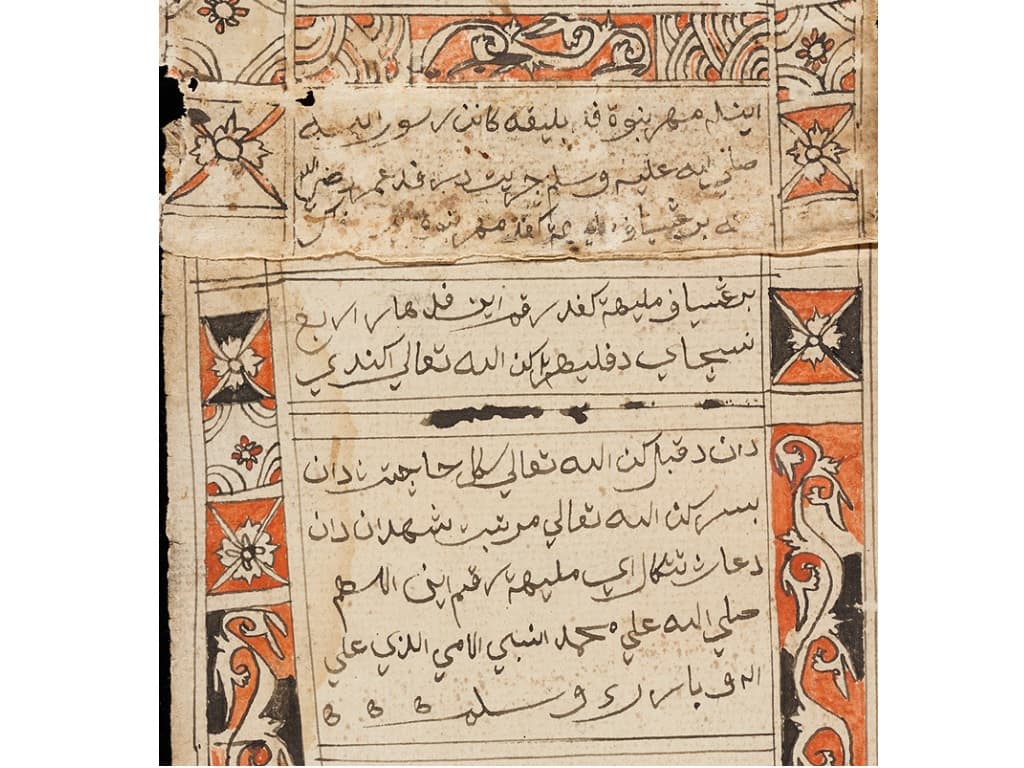 اينله مهر نبوة فد بليقه كانن رسول الله
صلي الله عليه وسلم جريت در فد عمر رضي الله
برغسياف كفد مهر نبوة
برغسياف مليهة كفد رقم اين فد هار اربع
نسچاي دفليهراكن الله تعالي اكندي
دان دقبلكن الله تعالي سكل حاجتث دان
بسركن الله تعالي مرتبت شهدان دان
دعاث تتكال اي مليهة رقم اين اللهم
صلي الله علي محمد النبي الامي الذي علي
اله و بارك و سلم